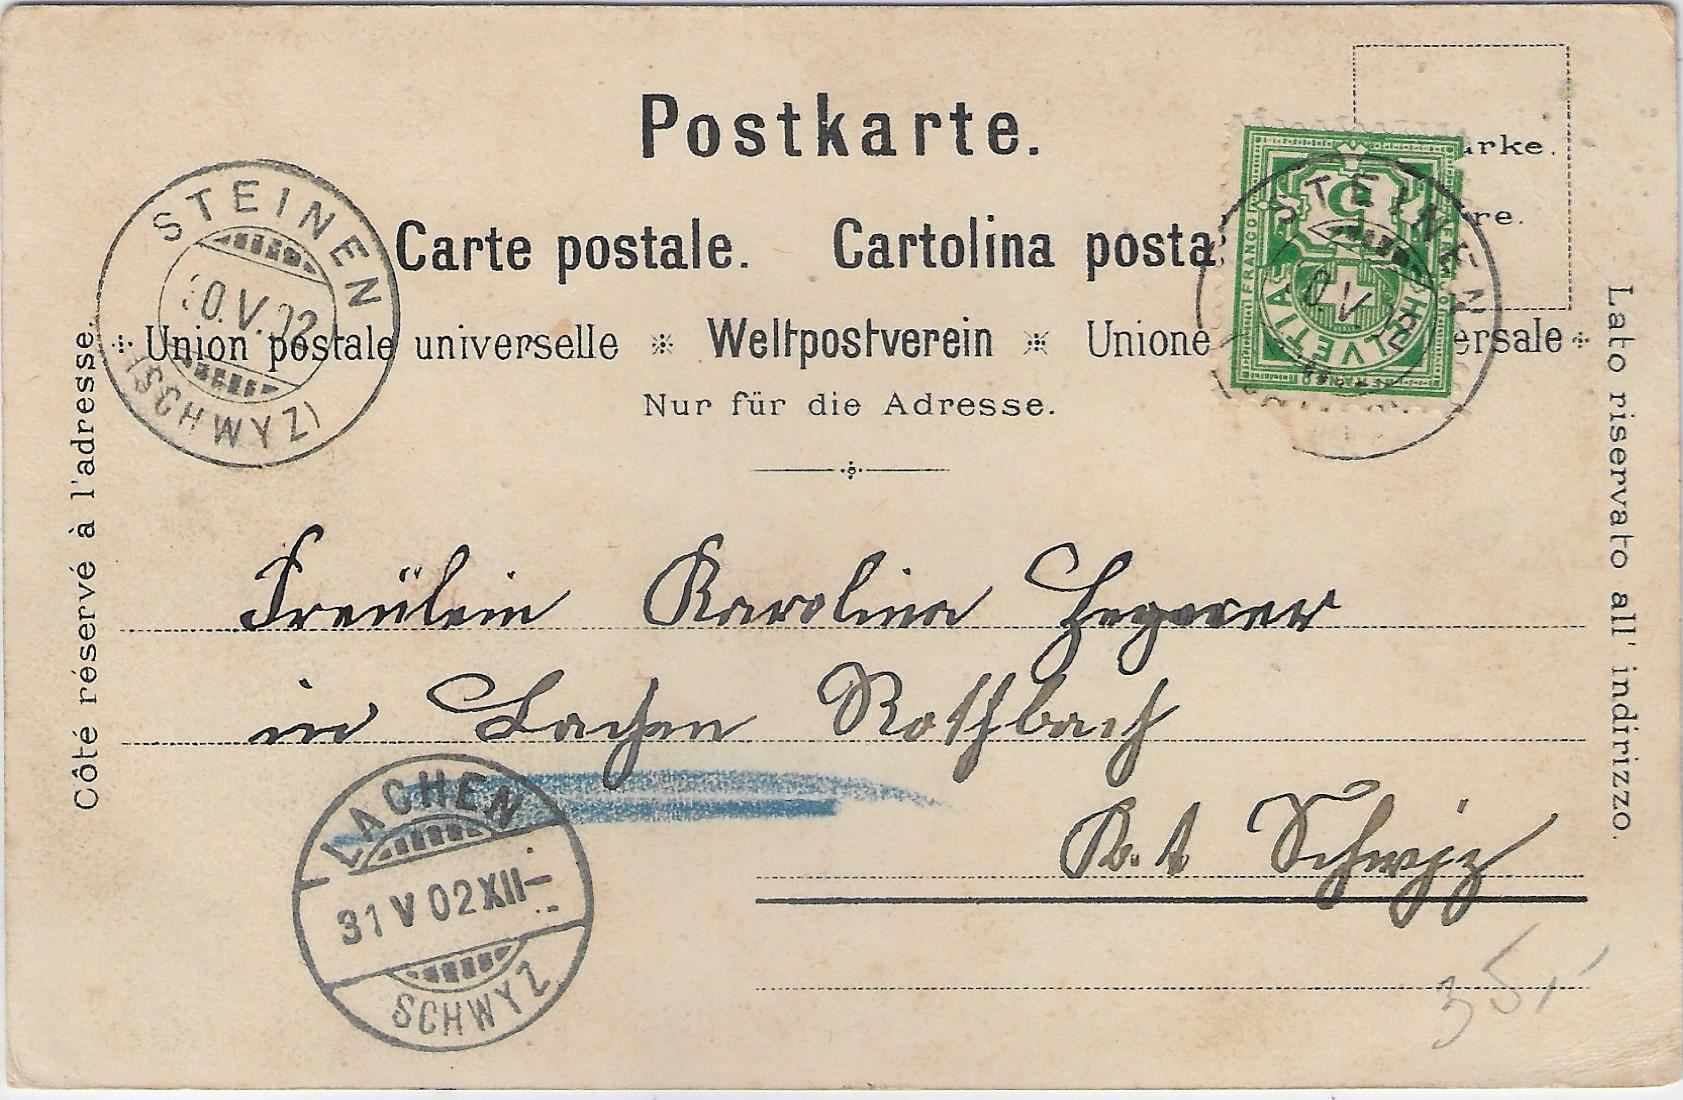 Postkarte.
Carte postale. Cartolina posta
Union postale universelle Weltpostverein Unione ersale
Nur für die Adresse.
arke.
re.
Côté réservé à l'adresse.
Lato riservato all' indirizzo.
STEINEN
0.V.02
(SCHWYZ)
FRANCO
5
HELVETIA
STEINEN
0.V.
Freülein Karolina
in Lachen Rothbach
Kt Schwyz
LACHEN
31 V 02 XII–
SCHWYZ
35,-